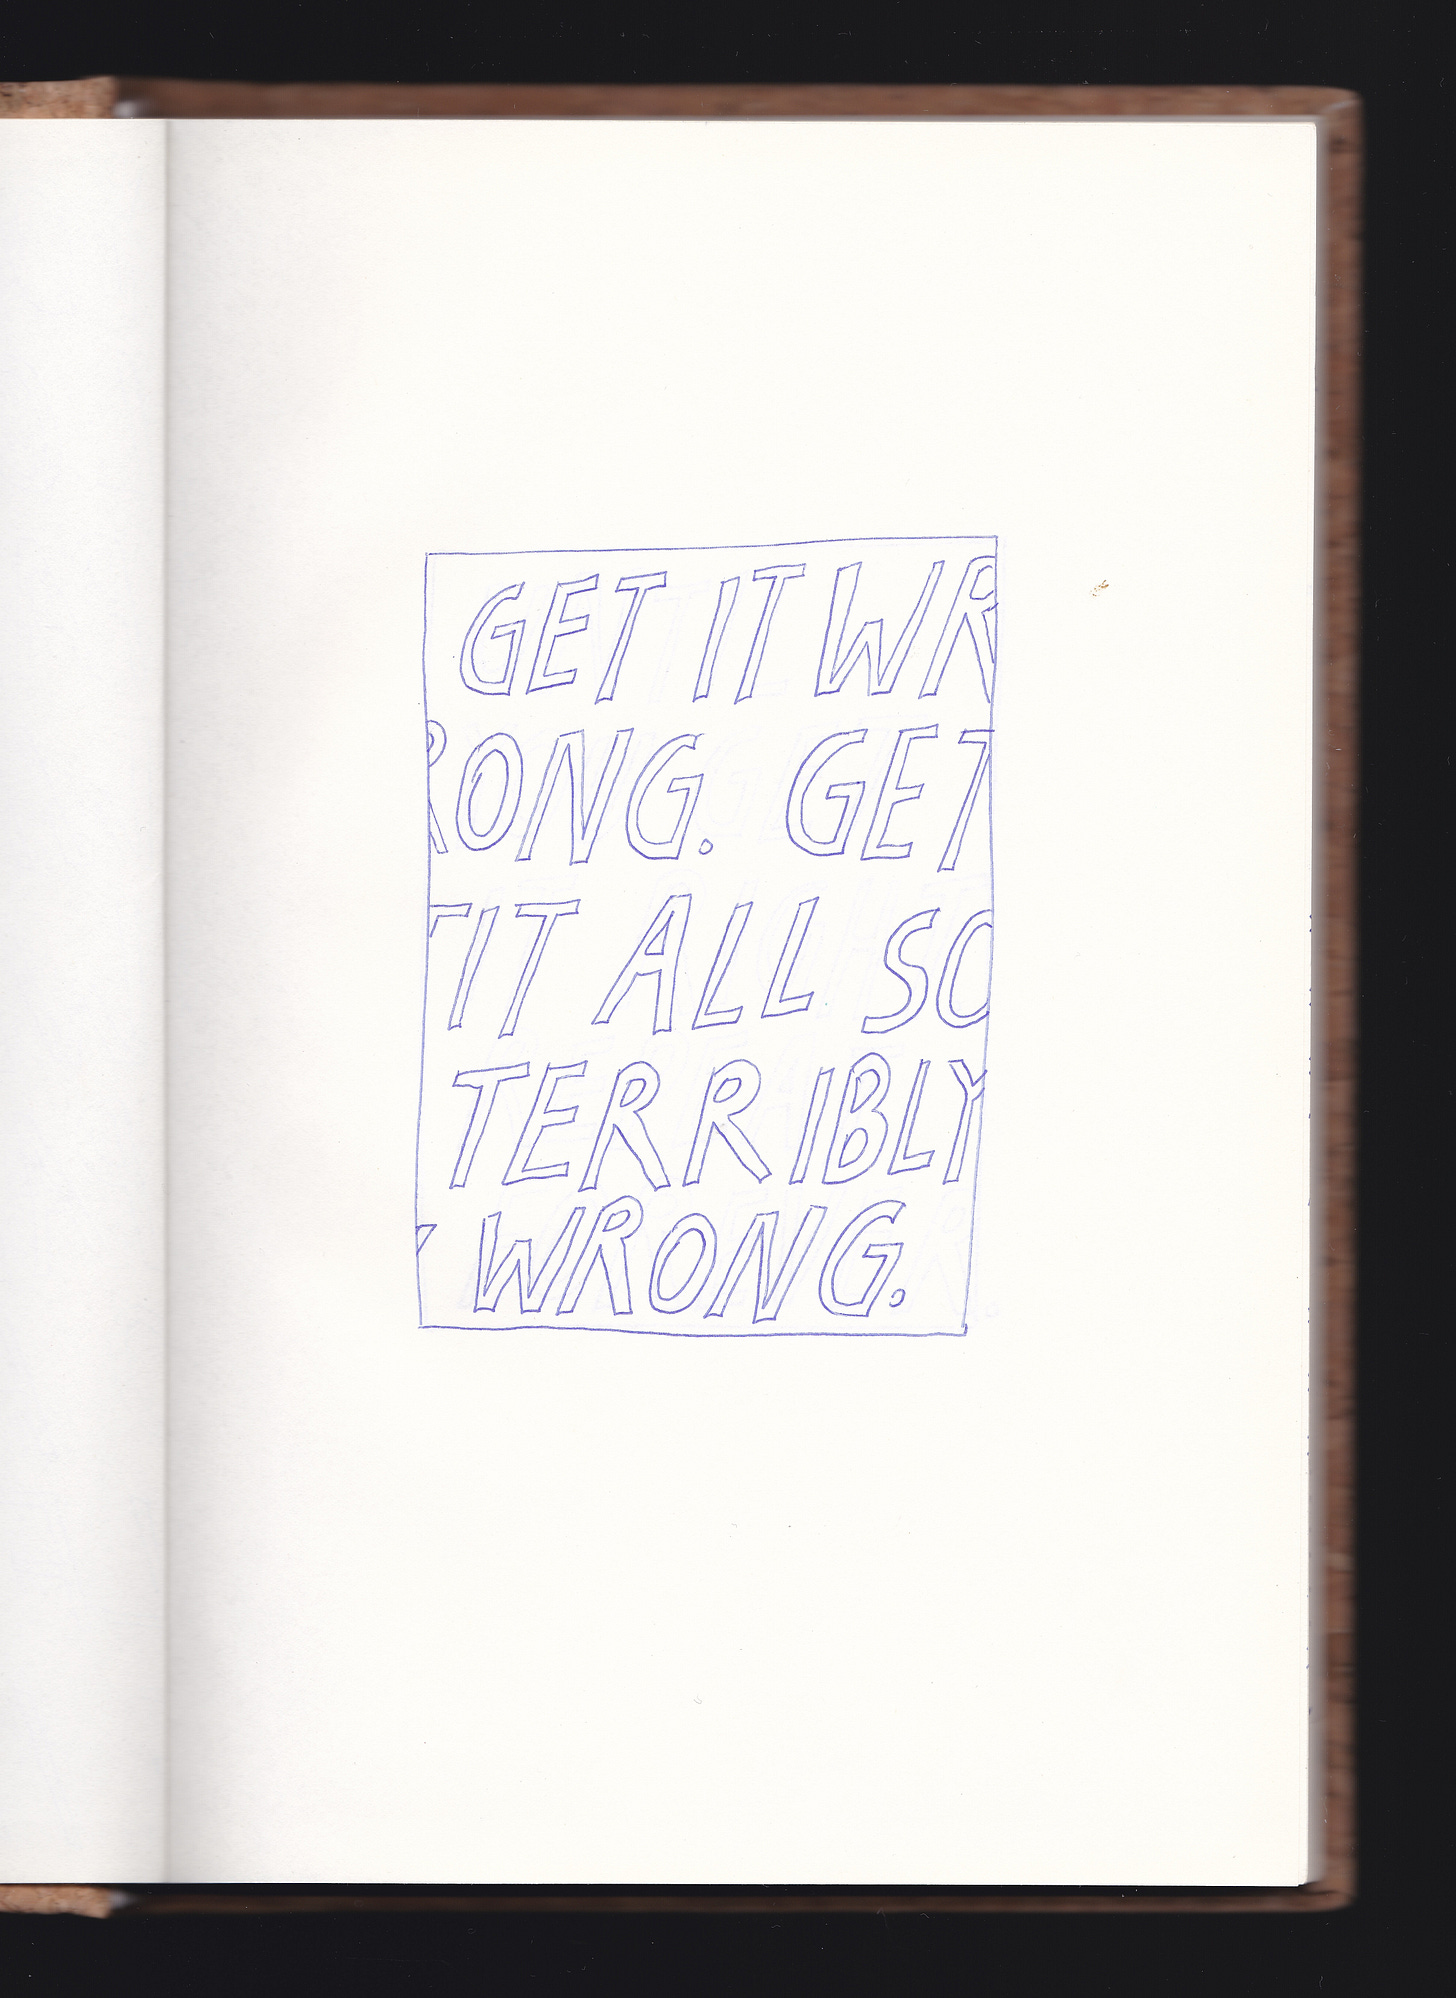 GET IT WR
RONG. GET
T IT ALL SO
TERRIBLY
Y WRONG.